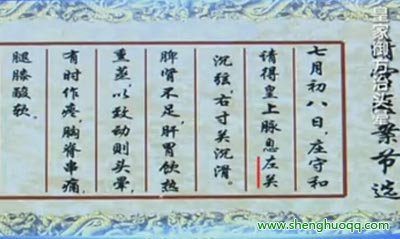 皇家御方治头晕
案节选
七月初八日，庄守和
请得皇上脉息左关
沉弦，右寸关沉滑。
脾肾不足，肝胃饮热
重蒸，以致动则头晕，
有时作疼，胸脊串痛，
腿膝酸软。
www.shenghuoqq.com